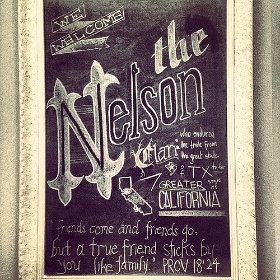 WE
WELCOME
the
Nelson
clan
who endured
the trek from
the great state
TX to the
GREATER state of
CALIFORNIA
friends come and friends go,
but a true friend sticks by
you like family." PROV 18:24